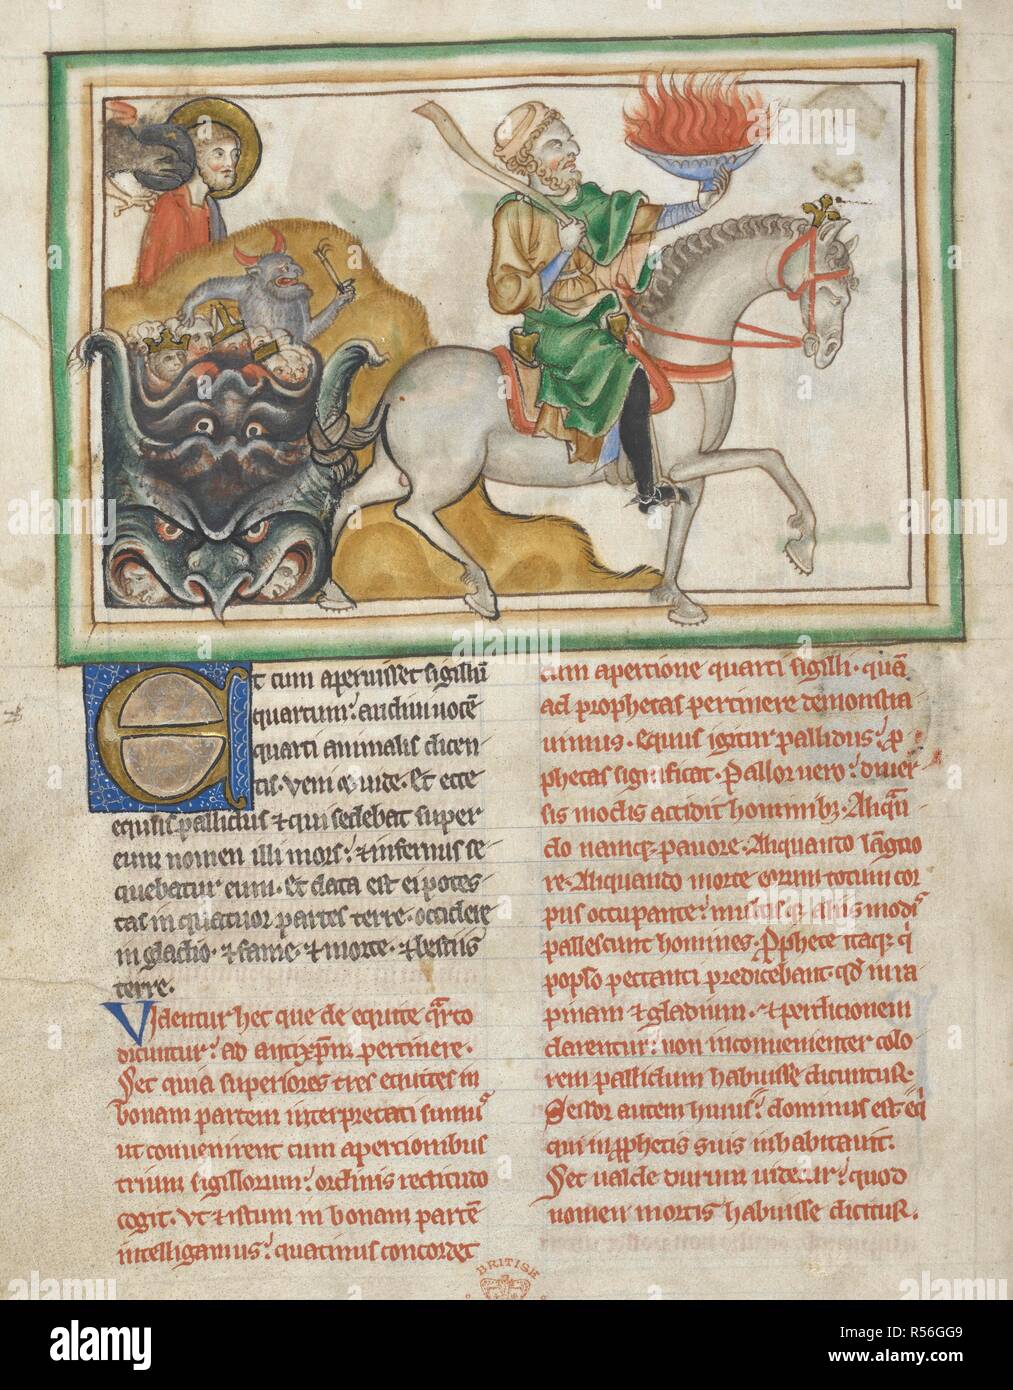 Et cum aperuisset sigillũ
quartum: audiui uocẽ
quarti animalis dicen
tis. Veni & uide. Et ecce
equus pallidus & qui sedebat super
eum nomen illi mors: & infernus se
quebatur eum. Et data est ei potes
tas in quatuor partes terre. occidere
in gladio. & fame. & morte. & bestiis
terre.
Videntur hec que de equite q̃rto
dicuntur: ad antix̃pm pertinere.
Set quia superiores tres equites in
bonam partem interpretati sumus
ut conuenirent cum apercionibus
trium sigillorum: ordinis rectitudo
cogit. Vt & istum in bonam partẽ
intelligamus: quatinus concordet
cum apercione quarti sigilli. quã
ad prophetas pertinere demonstra
uimus. Equus igitur pallidus: p̃
phetas significat. Pallor uero: diuer
sis modis accidit hominibz. Aliquã
do namqz pauore. Aliquando lãguo
re. Aliquando morte eorum totum cor
pus occupante: multis qz aliis modis
pallescunt homines. P̃phete itaqz q̃
popl̃o peccanti predicebant. qd̃ in ra
pinam & gladium. & perdicionem
darentur: non inconuenienter colo
rem pallidum habuisse dicuntur.
Sessor autem huius: dominus est
qui in p̃phetis suis inhabitauit.
Set ualde durum uidetur: quod
nomen mortis habuisse dicitur.
BRITISH
alamy
alamy stock photo
R56GG9
www.alamy.com